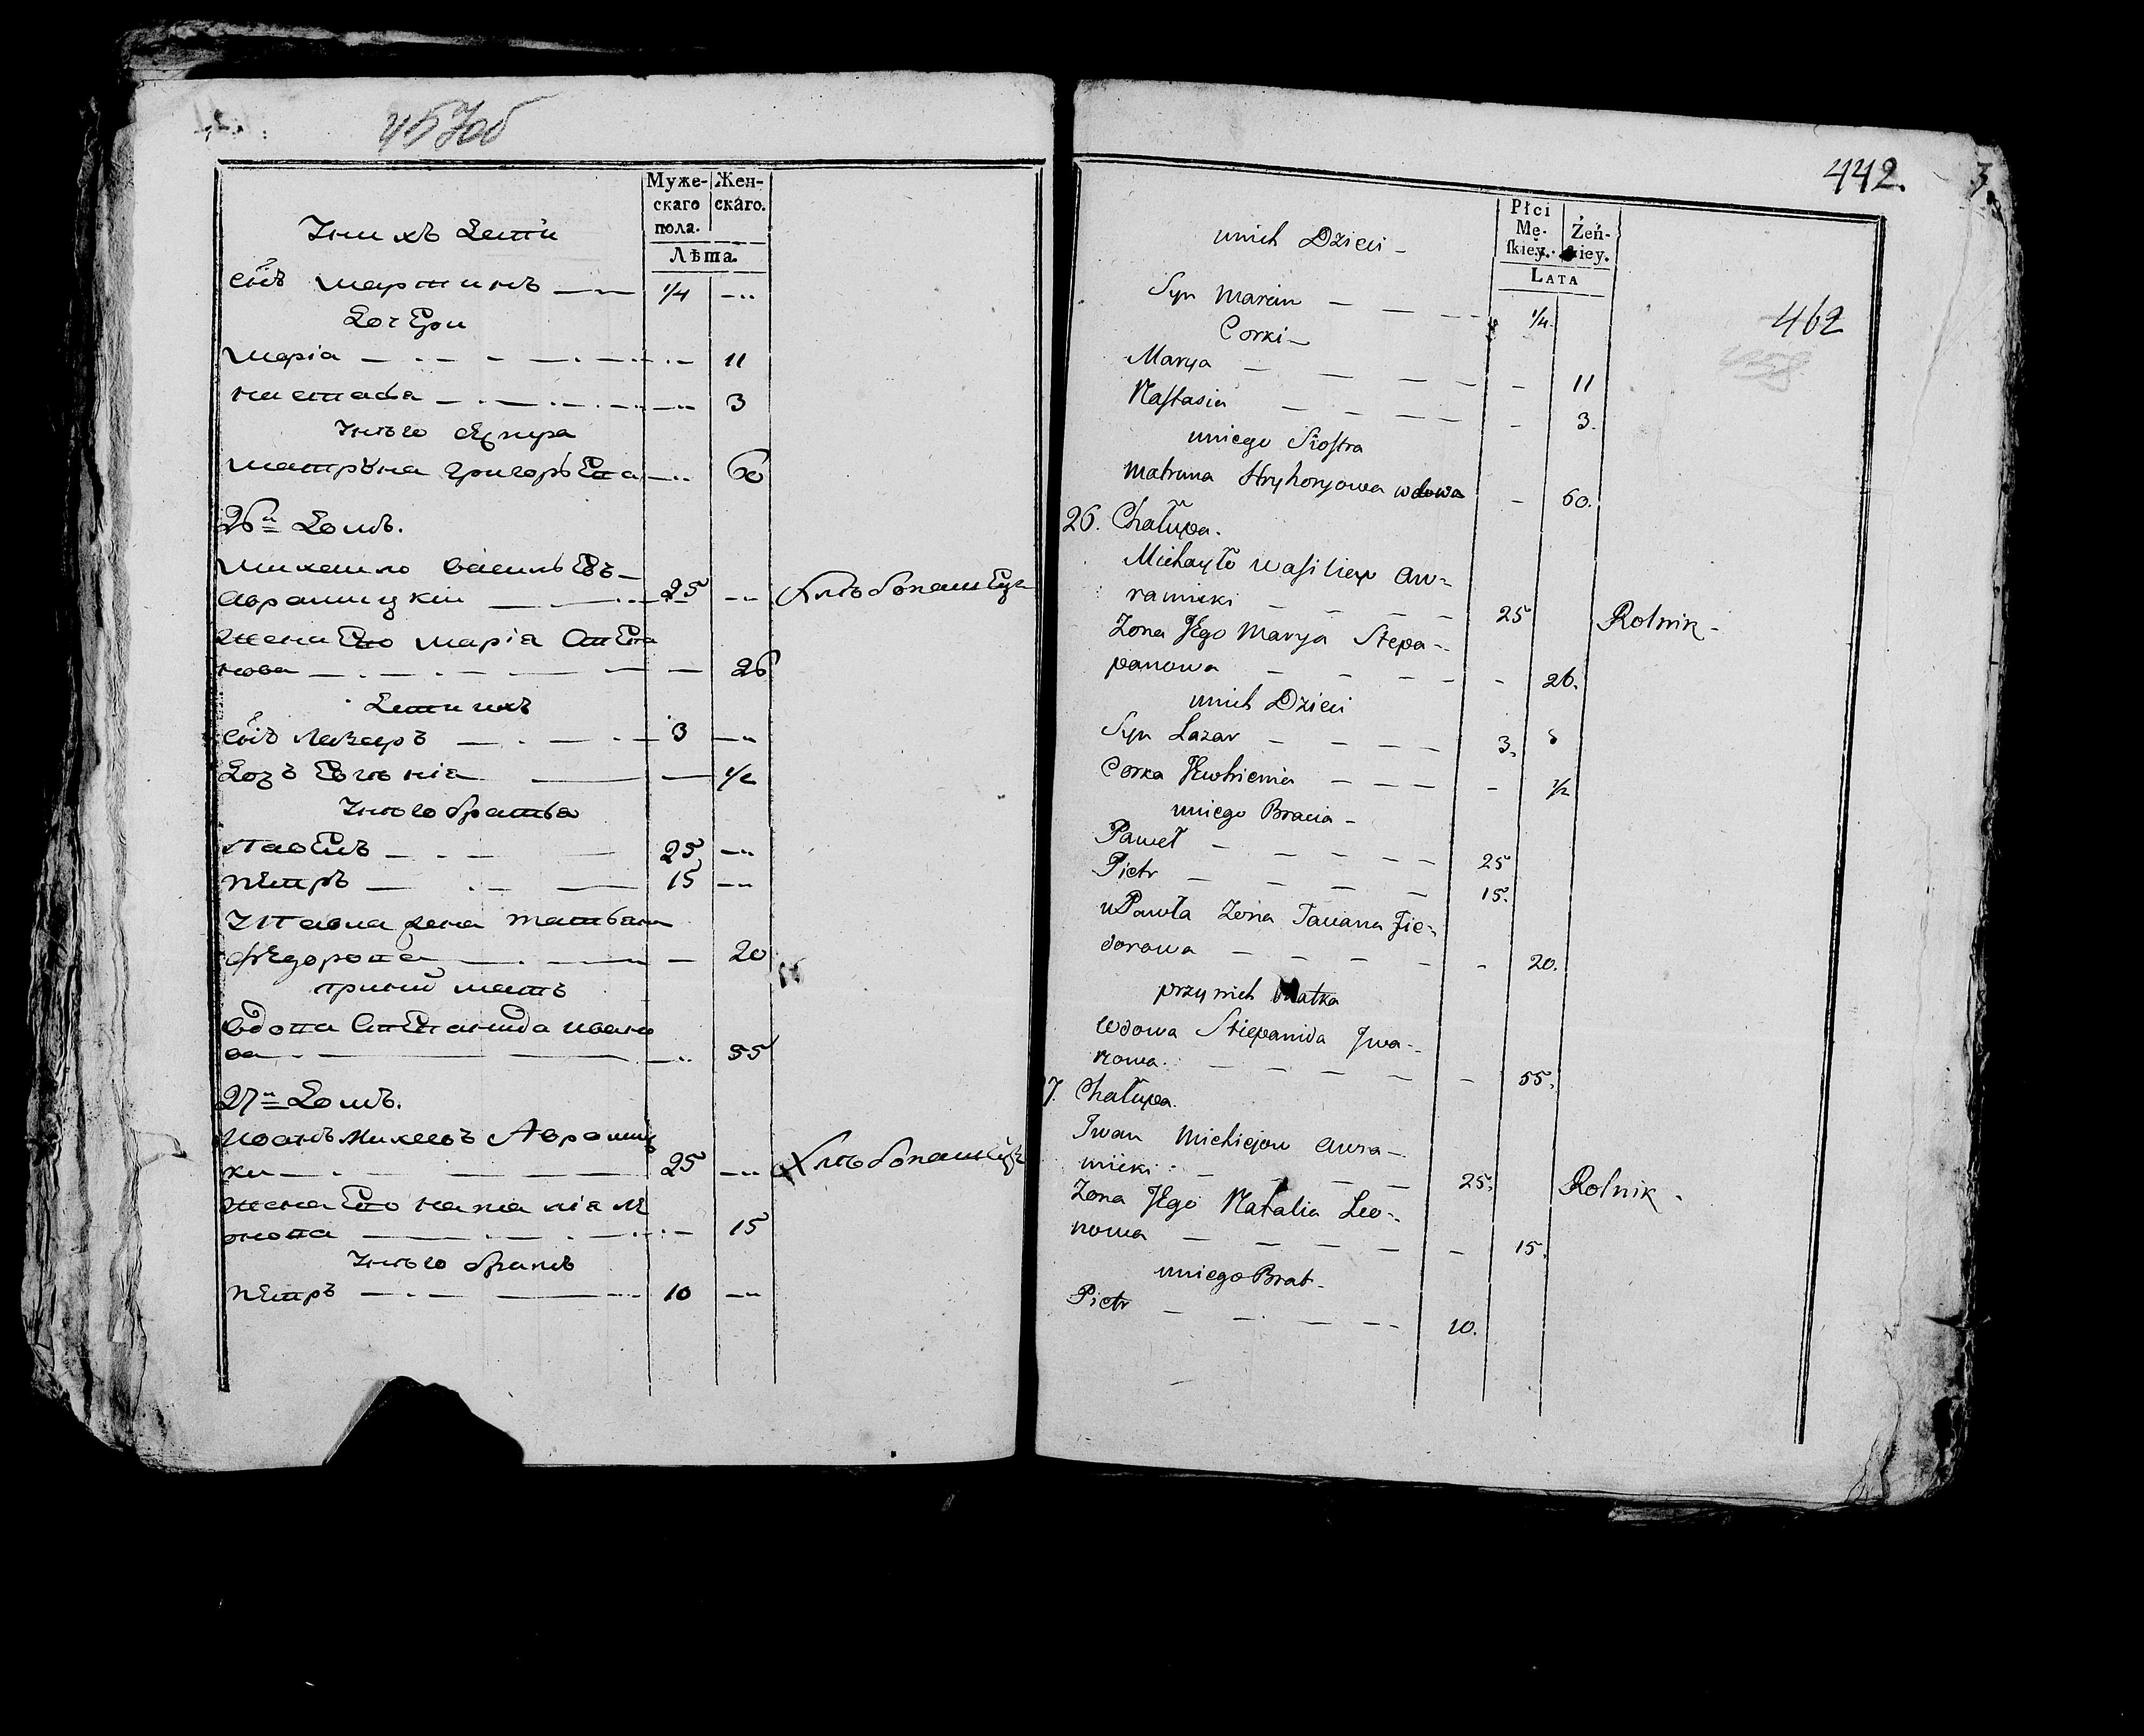 457об
Муже- Жен-
скаго скаго.
пола.
Лѣта.
У них дети
снъ Мартинъ 1/4
Дочери
Мариа 11
Настасѣа 3
У него сестра
Матруна Григорьева 60
26й Домъ.
Михаило Василевъ
Аврамицкий 25 Хлѣбопашецъ
Жена его Мариа Степа
нова 26
Дети ихъ
снъ Лазаръ 3
Дочъ Евгѣниа 1/2
У него братьа
Павелъ 25
Петръ 15
У Павла жена Татьана
Фѣдорова 20
при ний мать
вдова Степанида Ивано
ва 55
27й Домъ.
Иоанъ Михеевъ Аврамиц
ки 25 Хлѣбопашецъ
Жена его Наталиа Ле
онова 15
У него братъ
Петръ 10
442.
3.
Płci
Mę- Żeń-
ſkiey. ſkiey.
LATA
462
unich Dzieci
Syn Marcin 1/4.
Corki
Marya 11
Naſtasia 3.
uniego Sioſtra
Matruna Hryhoryowa wdowa 60.
26. Chałupa.
Michayło Wasiliew Aw-
ramicki 25 Rolnik
Zona Jego Marya Stepa-
panowa 26.
unich Dzieci
Syn Lazar 3.
Corka Jewhienia 1/2
uniego Bracia
Paweł 25
Pietr 15.
u Pawła Zona Taciana Fie-
dorowa 20.
przy nich Matka
Wdowa Stiepanida Iwa-
nowa. 55.
7. Chałupa.
Iwan Michiejow Awra-
micki 25. Rolnik
Zona Jego Natalia Leo-
nowa 15.
uniego Brat
Pietr 10.